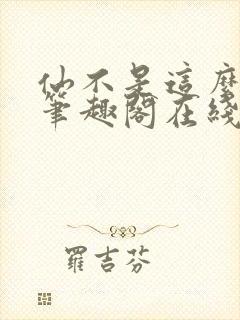 仙不是這麼
筆趣閣在綫
羅吉芬